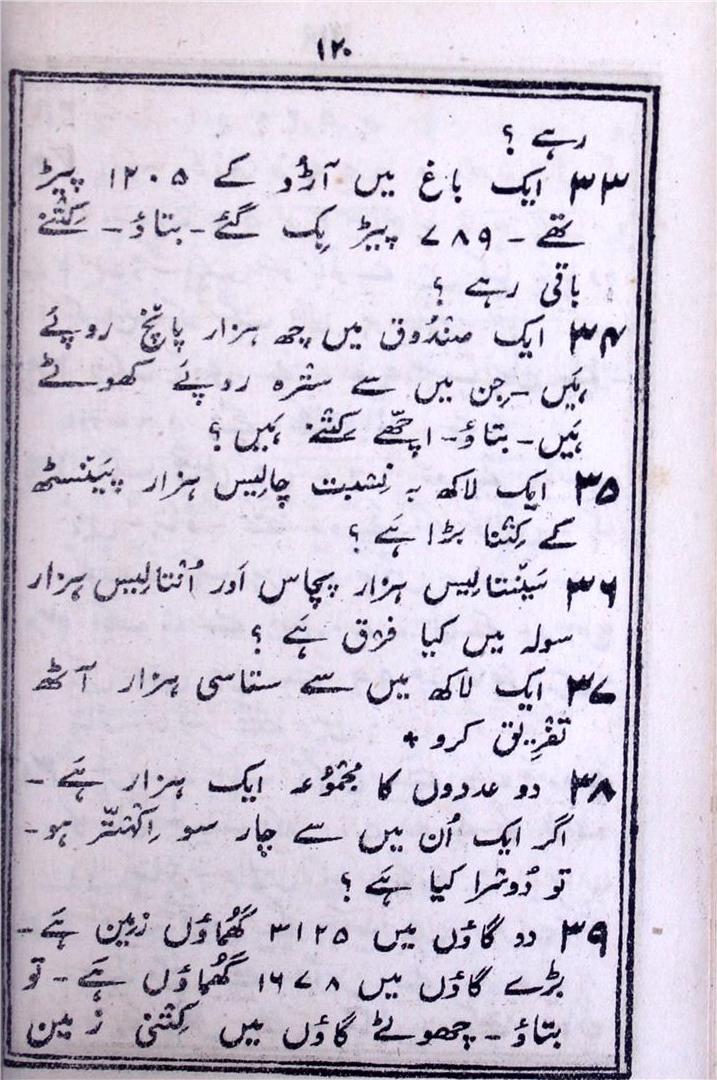 ۱۲۰
رہے ؟
۳۳ ایک باغ میں آڑُو کے ۱۲۰۵ پیڑ
تھے - ۷۸۹ پیڑ بِک گئے - بتاؤ - کِتْنے
باقی رہے ؟
۳۴ ایک صنْدُوق میں چھ ہزار پانچ روپَے
ہَیں - جِن میں سے سترہ روپَے کھوٹے
ہَیں - بتاؤ - اچھّے کِتْنے ہَیں ؟
۳۵ ایک لاکھ بہ نِسْبت چالِیس ہزار پَینْسٹھ
کے کِتْنا بڑا ہَے ؟
۳۶ سَینْتالِیس ہزار پچاس اَور اُنْتالِیس ہزار
سولہ میں کیا فرق ہَے ؟
۳۷ ایک لاکھ میں سے ستاسی ہزار آٹھ
تفْرِیق کرو *
۳۸ دو عددوں کا مجْمُوُعہ ایک ہزار ہَے -
اگر ایک اُن میں سے چار سو اِکْہتّر ہو -
تو دُوسْرا کیا ہَے ؟
۳۹ دو گاؤں میں ۳۱۲۵ گھُماؤں زمِین ہَے -
بڑے گاؤں میں ۱۶۷۸ گھُماؤں ہَے - تو
بتاؤ - چھوٹے گاؤں میں کِتْنی زمِین